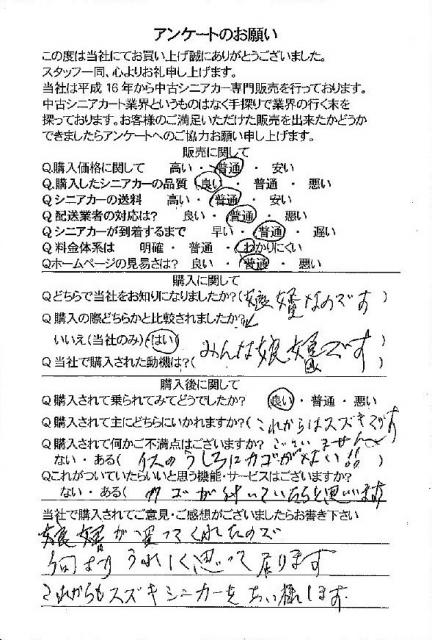 アンケートのお願い
この度は当社にてお買い上げ誠にありがとうございました。
スタッフ一同、心よりお礼申し上げます。
当社は平成16年から中古シニアカー専門販売を行っております。
中古シニアカート業界というものはなく手探りで業界の行く末を
探っております。お客様のご満足いただけた販売を出来たかどうか
できましたらアンケートへのご協力お願い申し上げます。
販売に関して
Q.購入価格に関して 高い・普通・安い
Q.購入したシニアカーの品質 良い・普通・悪い
Q シニアカーの送料 高い・普通・安い
Q 配送業者の対応は? 良い・普通・悪い
Q シニアカーが到着するまで 早い・普通・遅い
Q 料金体系は 明確・普通・わかりにくい
Qホームページの見易さは? 良い・普通・悪い
購入に関して
Q どちらで当社をお知りになりましたか?( なのです )
Q 購入の際どちらかと比較されましたか?
いいえ(当社のみ) はい( みんな です )
Q 当社で購入された動機は?
購入後に関して
Q 購入されて乗られてみてどうでしたか? 良い・普通・悪い
Q 購入されて主にどちらにいかれますか?( これからはスズキです
Q 購入されて何かご不満点はございますか? ございません
ない・ある( イスのうしろにカゴがない!! )
Qこれがついていたらいいと思う機能・サービスはございますか?
ない・ある( カゴが付いていたらと思います
当社で購入されてご意見・ご感想がございましたらお書き下さい
が買ってくれたので
何よりうれしく思って居ります
これからもスズキシニカーを お願します.